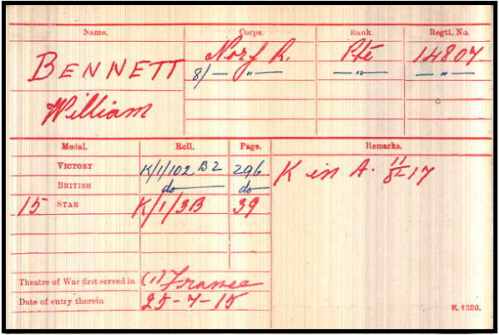 Name. Corps. Rank. Regtl. No.
BENNETT Norf R. Pte 14807
8/ — " — — " — — " —
William
Medal. Roll. Page. Remarks.
VICTORY K/1/102 B2 296 K in A. 11/8-17
BRITISH do do
15 STAR K/1/3B 39
Theatre of War first served in (1) France
Date of entry therein 25-7-15
K. 1380.